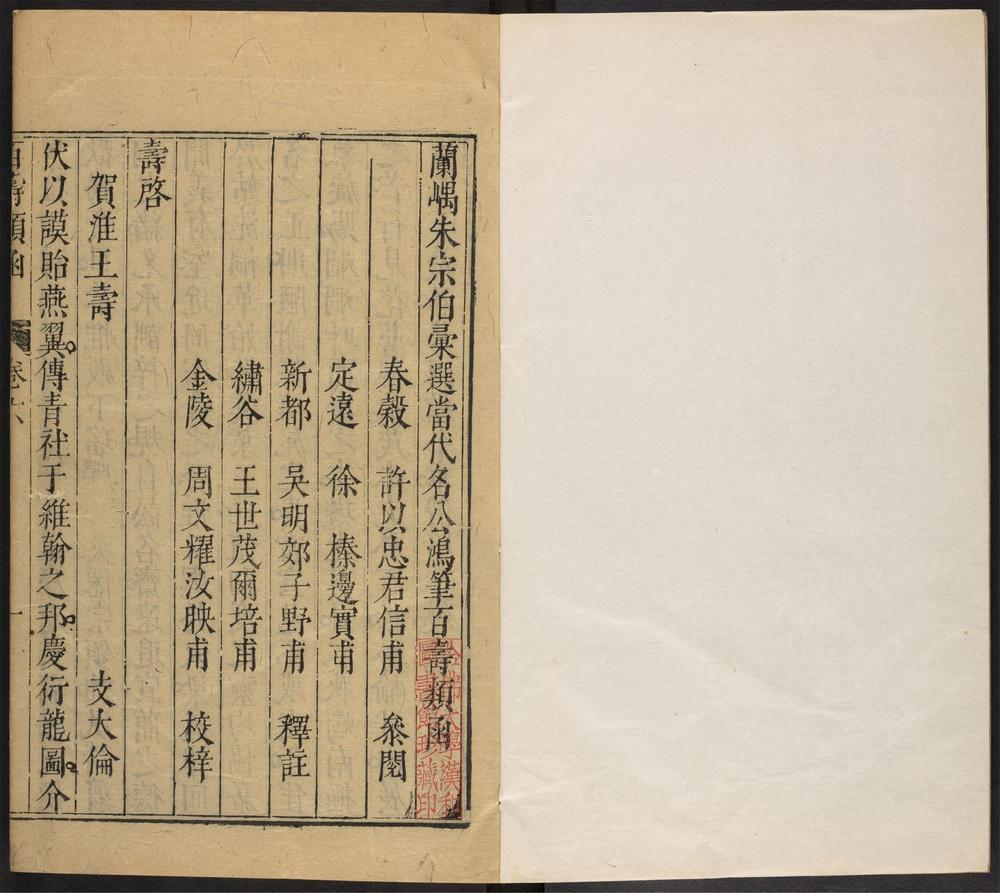 蘭嵎朱宗伯彙選當代名公鴻筆百壽類函
春穀 許以忠君信甫 叅閱
定遠 徐榛邊實甫
新都 吳明郊子野甫 釋註
繡谷 王世茂爾培甫
金陵 周文耀汝映甫 校梓
壽啓
賀淮王壽 支大倫
伏以謨貽燕翼傳青社于維翰之邦慶衍龍圖介
百壽類函 卷六 一